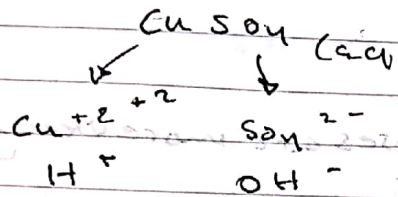 CuSO4 (aq)
Cu+2 +2 SO4 2-
H+ OH-